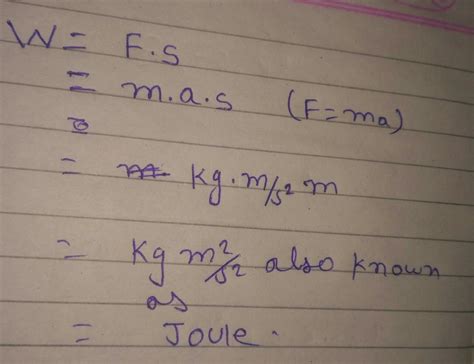 W = F.s
= m.a.s (F=ma)
=
= kg.m/s² m
= kg m²/s² also known
as
= Joule.